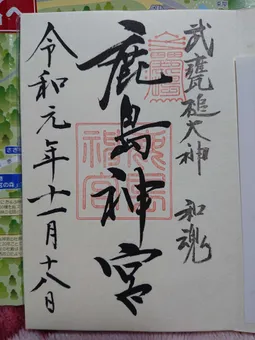 武甕槌大神 和魂
鹿島神宮
令和元年十一月十八日